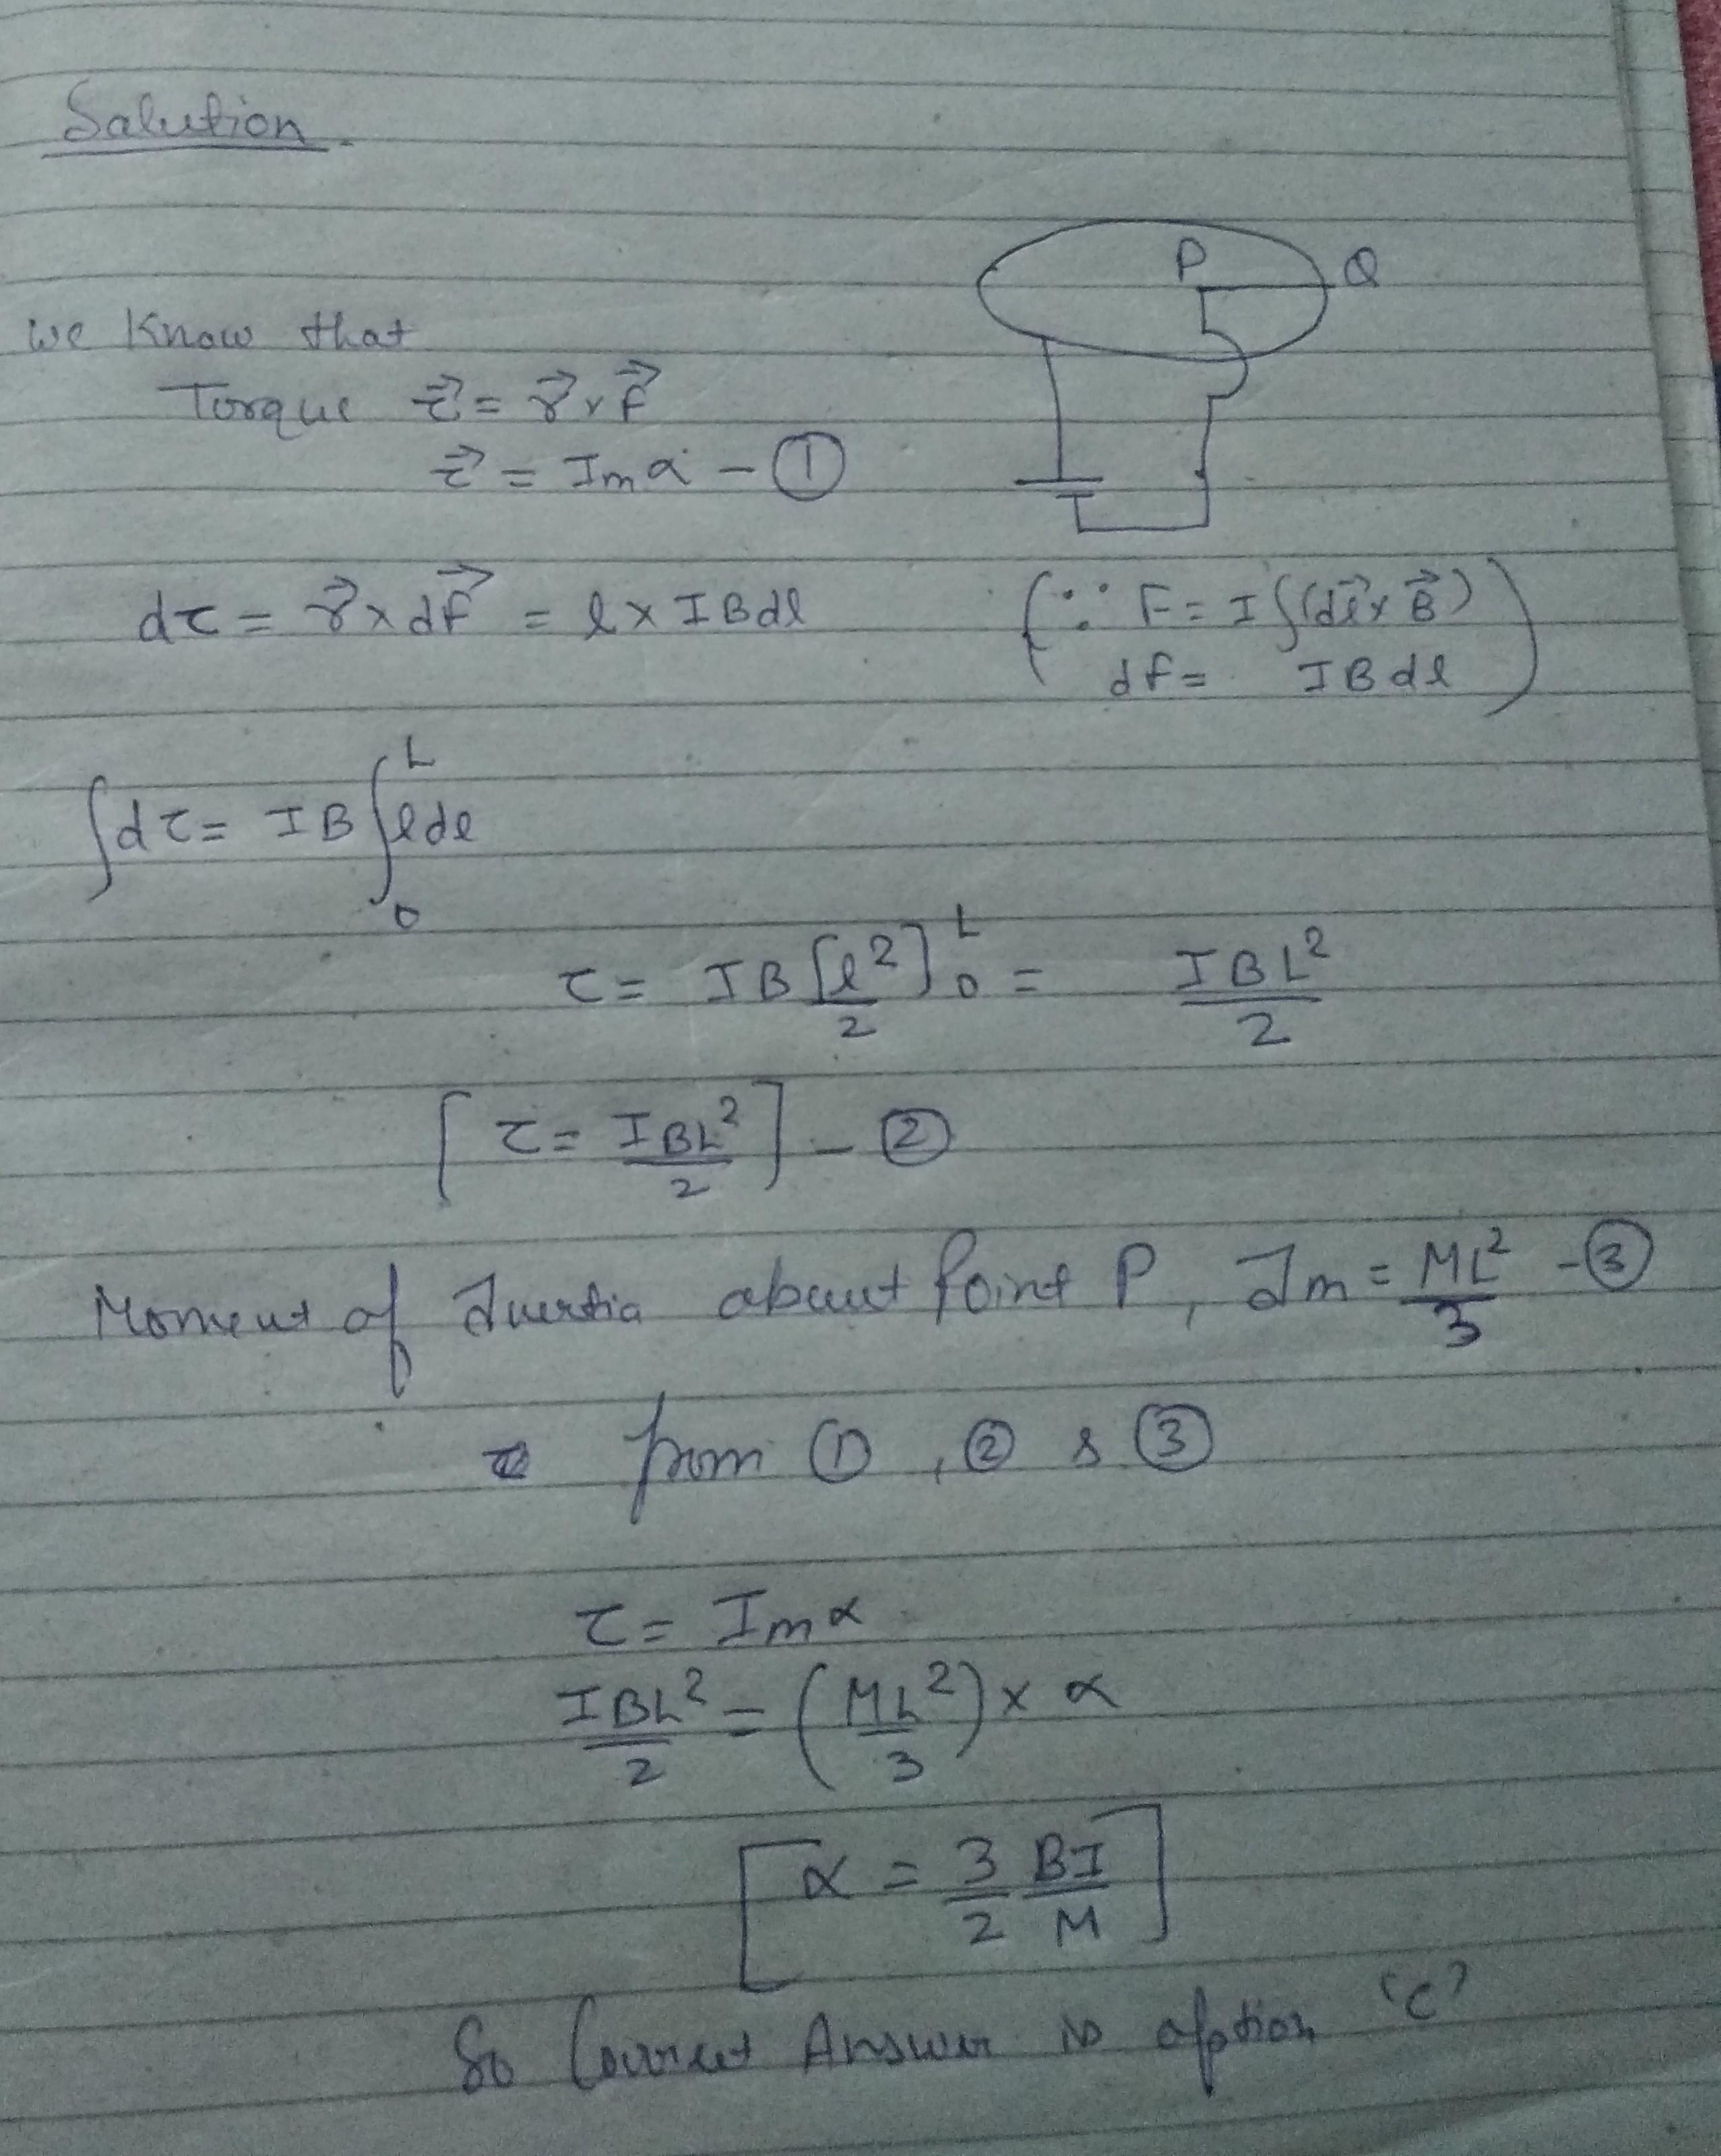 Salution
P
Q
we Know that
Torque τ⃗ = r⃗ × F⃗
τ⃗ = Im α – ①
dτ = r⃗ × dF⃗ = l × IBdl (∵ F = I ∫(dl⃗ × B⃗)
df = IBdl)
∫dτ = IB ∫₀ᴸ ldl
τ = IB [l²/2]₀ᴸ = IBL²/2
[τ = IBL²/2] – ②
Moment of Inertia about Point P, Im = ML²/3 – ③
from ①, ② & ③
τ = Im α
IBL²/2 = (ML²/3) × α
[α = 3/2 BI/M]
So Correct Answer is option 'c'